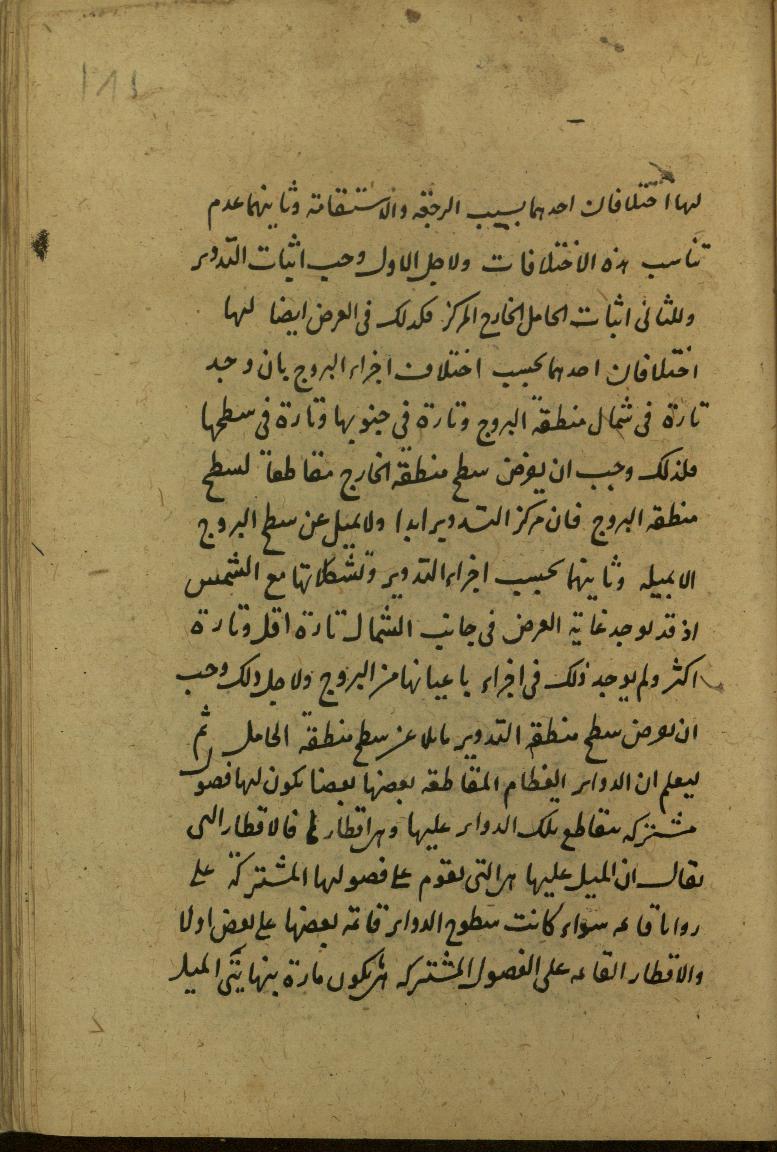 ١٨١
لها اختلافان احدهما بسبب الرجعة والاستقامة وثانيهما عدم
تناسب هذه الاختلافات ولاجل الاول وجب اثبات التدوير
وللثانى اثبات الحامل الخارج المركز فكذلك فى العرض ايضا لها
اختلافان احدهما بحسب اختلاف اجزاء البروج بان وجد
تارة فى شمال منطقة البروج وتارة فى جنوبها وتارة فى سطحها
فلذلك وجب ان يفرض سطح منطقة الخارج متقاطعا لسطح
منطقه البروج فان مركز التدوير ابدا ولا يميل عن سطح البروج
الا بميله وثانيهما بحسب اجزاء التدوير وتشكلاتها مع الشمس
اذ قد يوجد غاية العرض فى جانب الشمال تارة اقل وتارة
اكثر ولم يوجد ذلك فى اجزاء باعيانها من البروج ولاجل ذلك وجب
ان يفرض سطح منطقة التدوير مايلا عن سطح منطقة الحامل ثم
ليعلم ان الدواير العظام المتقاطعه بعضها بعضا يكون لها فصول
مشتركه يتقاطع تلك الدواير عليها وهى اقطارها فالاقطار التى
يقال ان الميل عليها هى التى يقوم على فصولها المشتركة على
زوايا قائمه سواء كانت سطوح الدواير قائمة بعضها على بعض او لا
والاقطار القائمه على الفصول المشتركه هى يكون مارة بنهايتى الميل